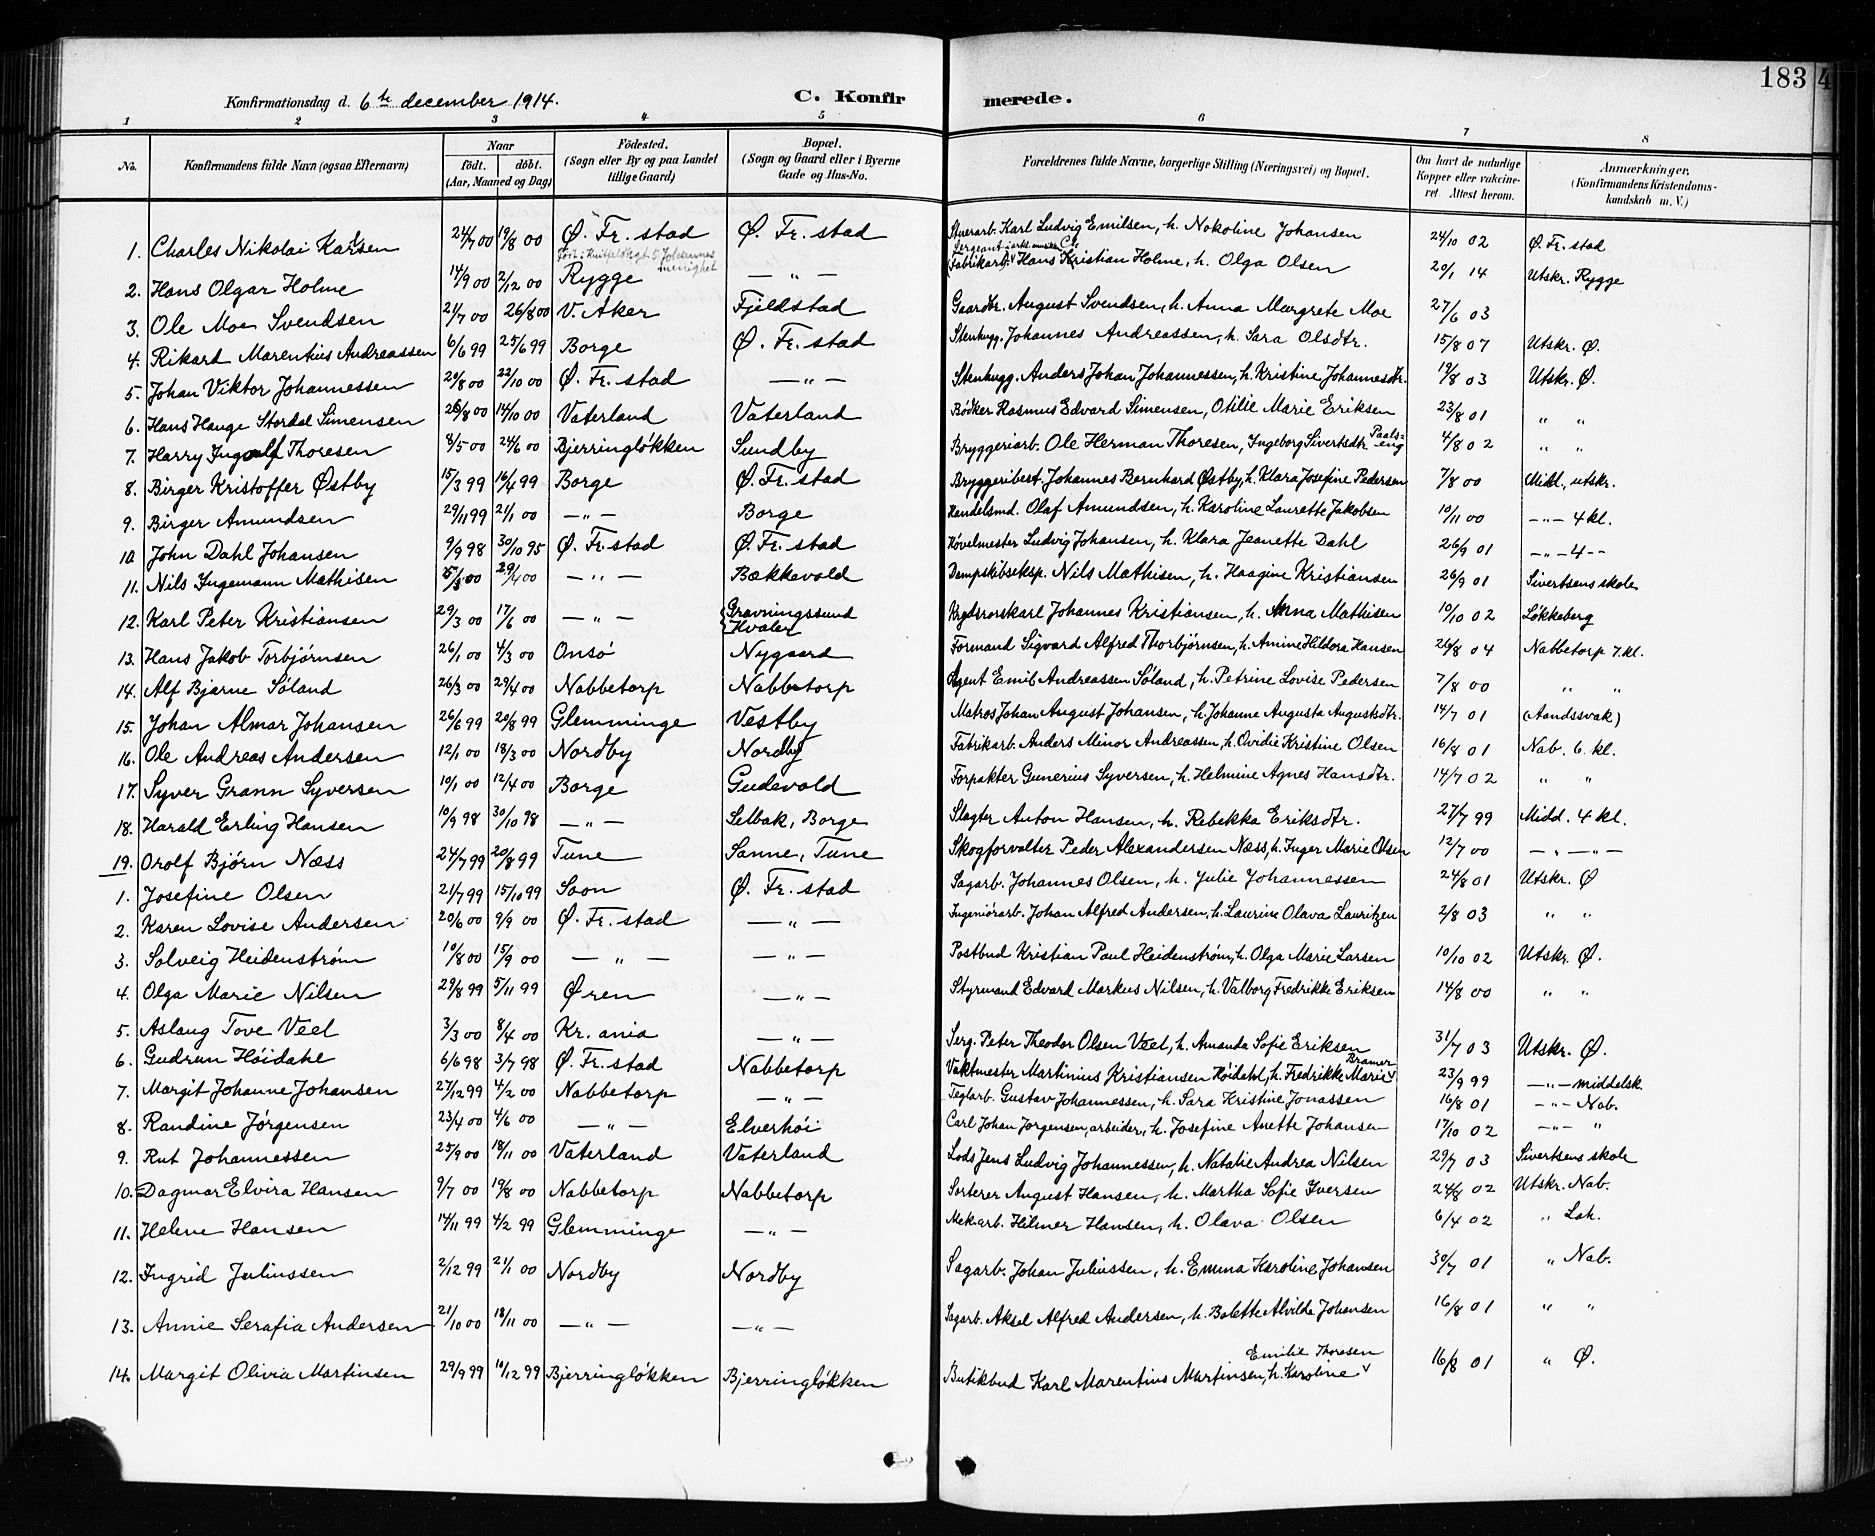 183
Konfirmationsdag d. 6te december 1914. C. Konfirmerede.
1 2 3 4 5 6 7 8
No. Konfirmandens fulde Navn (ogsaa Efternavn) Naar født. døbt. (Aar, Maaned og Dag) Fødested. (Sogn eller By og paa Landet tillige Gaard) Bopæl. (Sogn og Gaard eller i Byerne Gade og Hus-No. Forældrenes fulde Navne, borgerlige Stilling (Næringsvei) og Bopæl. Om havt de naturlige Kopper eller vakcineret Attest herom. Anmerkninger. (Konfirmandens Kristendomskundskab m. V.)
1. Charles Nikolai Karlsen 24/7 00 19/8 00 Ø. Fr. stad Ø. Fr. stad Stuerarb. Karl Ludvig Emilsen, h. Nokoline Johansen 24/10 02 Ø. Fr. stad
2. Hans Olgar Holme 14/9 00 2/12 00 Rygge — " — Fabrikarb. Hans Kristian Holme, h. Olga Olsen 20/1 14 Utskr. Rygge
3. Ole Moe Svendsen 21/7 00 26/8 00 V. Aker Fjeldstad Gaardbr. August Svendsen, h. Anna Margrete Moe 27/6 03
4. Rikard Marentius Andreassen 6/6 99 25/6 99 Borge Ø. Fr. stad Stenhugg. Johannes Andreassen, h. Sara Olsdtr. 15/8 07 Utskr. Ø.
5. Johan Viktor Johannessen 20/8 00 22/10 00 Ø. Fr. stad — " — Stenhugg. Anders Johan Johannessen, h. Kristine Johannesdtr. 19/8 03 Utskr. Ø.
6. Hans Hauge Stordal Simensen 26/8 00 14/10 00 Vaterland Vaterland Bødker Rasmus Edvard Simensen, Otilie Marie Eriksen 23/8 01 " "
7. Harry Ingolf Thoresen 8/5 00 24/6 00 Bjerringløkken Sundby Bryggeriarb. Ole Herman Thoresen, Ingeborg Sivertsdtr. Paalseng 4/8 02 " "
8. Birger Kristoffer Østby 15/3 99 16/4 99 Borge Ø. Fr. stad Bryggeribest. Johannes Bernhard Østby, h. Klara Josefine Pedersen 7/8 00 Midl., utskr.
9. Birger Amundsen 29/11 99 21/1 00 — " — Borge Handelsmd. Olaf Amundsen, h. Karoline Laurette Jakobsen 10/11 00 — " — 4 kl.
10. John Dahl Johansen 9/9 98 30/10 95 Ø. Fr. stad Ø. Fr. stad Høvelmester Ludvig Johansen, h. Klara Jeanette Dahl 26/9 01 — " — 4 - -
11. Nils Ingemann Mathisen 5/3 00 29/4 00 — " — Bækkevold Dampskibseksp. Nils Mathisen, h. Haagine Kristiansen 26/9 01 Sivertsens skole
12. Karl Peter Kristiansen 29/3 00 17/6 00 — " — Gravningssund Kvaler Johannes Kristiansen, h. Anna Mathisen 10/10 02 Løkkeberg
13. Hans Jakob Torbjørnsen 26/1 00 4/3 00 Onsø Nygaard Formand Sigvard Alfred Thorbjørnsen, h. Amine Hildora Hansen 26/8 04 Nabbetorp 7. kl.
14. Alf Bjarne Søland 26/3 00 29/4 00 Nabbetorp Nabbetorp Agent Emil Andreassen Søland, h. Petrine Lovise Pedersen 7/8 00 " "
15. Johan Almar Johansen 26/6 99 20/8 99 Glemminge Vestby Matros Johan August Johansen, h. Johanne Augusta Augustsdtr. 14/7 01 (Aandssvak)
16. Ole Andreas Andersen 12/1 00 18/3 00 Nordby Nordby Fabrikarb. Anders Minor Andreassen, h. Ovidie Kristine Olsen 16/8 01 Nab. 6. kl.
17. Syver Grann Syversen 10/1 00 12/4 00 Borge Gudevold Forpakter Gunerius Syversen, h. Helmine Agnes Hansdtr. 14/7 02 " "
18. Harald Erling Hansen 10/9 98 30/10 98 — " — Selbak, Borge Slagter Anton Hansen, h. Rebekka Eriksdtr. 27/7 99 Midd. 4 kl.
19. Orolf Bjørn Næss 24/7 99 20/8 99 Tune Sanne, Tune Skogforvalter Peder Alexandersen Næss, h. Inger Marie Olsen 12/7 00 — " — " —
1. Josefine Olsen 21/7 99 15/10 99 Soon Ø. Fr. stad Sagarb. Johannes Olsen, h. Julie Johannessen 24/8 01 Utskr. Ø
2. Karen Lovise Andersen 20/6 00 9/9 00 Ø. Fr. stad — " — Ingeniørarb. Johan Alfred Andersen, h. Laurine Olava Lauritzen 2/8 03 " "
3. Solveig Heidenstrøm 10/8 00 15/9 00 — " — — " — Postbud Kristian Paul Heidenstrøm, h. Olga Marie Larsen 10/10 02 Utskr. Ø.
4. Olga Marie Nilsen 29/8 99 5/11 99 Øren — " — Styrmand Edvard Markus Nilsen, h. Valborg Fredrikke Eriksen 14/8 00 " "
5. Aslaug Tove Veel 3/3 00 8/4 00 Kr. ania — " — Serg. Peter Theodor Olsen Veel, h. Amanda Sofie Eriksen 31/7 03 Utskr. Ø.
6. Gudrun Høidahl 6/6 98 3/7 98 Ø. Fr. stad Nabbetorp Vaktmester Martinius Kristiansen Høidahl, h. Fredrikke Marie Bramer 23/9 99 — " — middelsk.
7. Margit Johanne Johansen 27/12 99 4/2 00 Nabbetorp — " — Teglarb. Gustav Johannessen, h. Sara Kristine Jonassen 16/8 01 — " — Nab.
8. Randine Jørgensen 23/4 00 4/6 00 — " — Elverhøi Carl Johan Jørgensen, arbeider, h. Josefine Anette Johansen 17/10 02 — " — "
9. Rut Johannessen 25/9 00 18/11 00 Vaterland Vaterland Lods Jens Ludvig Johannessen, h. Natalie Andrea Nilsen 29/7 03 Sivertsens skole
10. Dagmar Elvira Hansen 9/7 00 19/8 00 Nabbetorp Nabbetorp Sorterer August Hansen, h. Martha Sofie Iversen 24/8 02 Utskr. Nab.
11. Helene Hansen 14/11 99 4/2 99 Glemminge — " — Mek. arb. Hilmer Hansen, h. Olava Olsen 6/4 02 " Lah.
12. Ingrid Juliussen 2/12 99 21/1 00 Nordby Nordby Sagarb. Johan Juliussen, h. Emma Karoline Johansen 30/7 01 " Nab.
13. Annie Serafia Andersen 21/10 00 18/11 00 — " — — " — Sagarb. Aksel Alfred Andersen, h. Bolette Alvilda Johansen 16/8 01 " "
14. Margit Olivia Martinsen 29/9 99 10/12 99 Bjerringløkken Bjerringløkken Butikbud Karl Marentius Martinsen, h. Karoline Emilie Thoresen 16/8 01 " Ø.